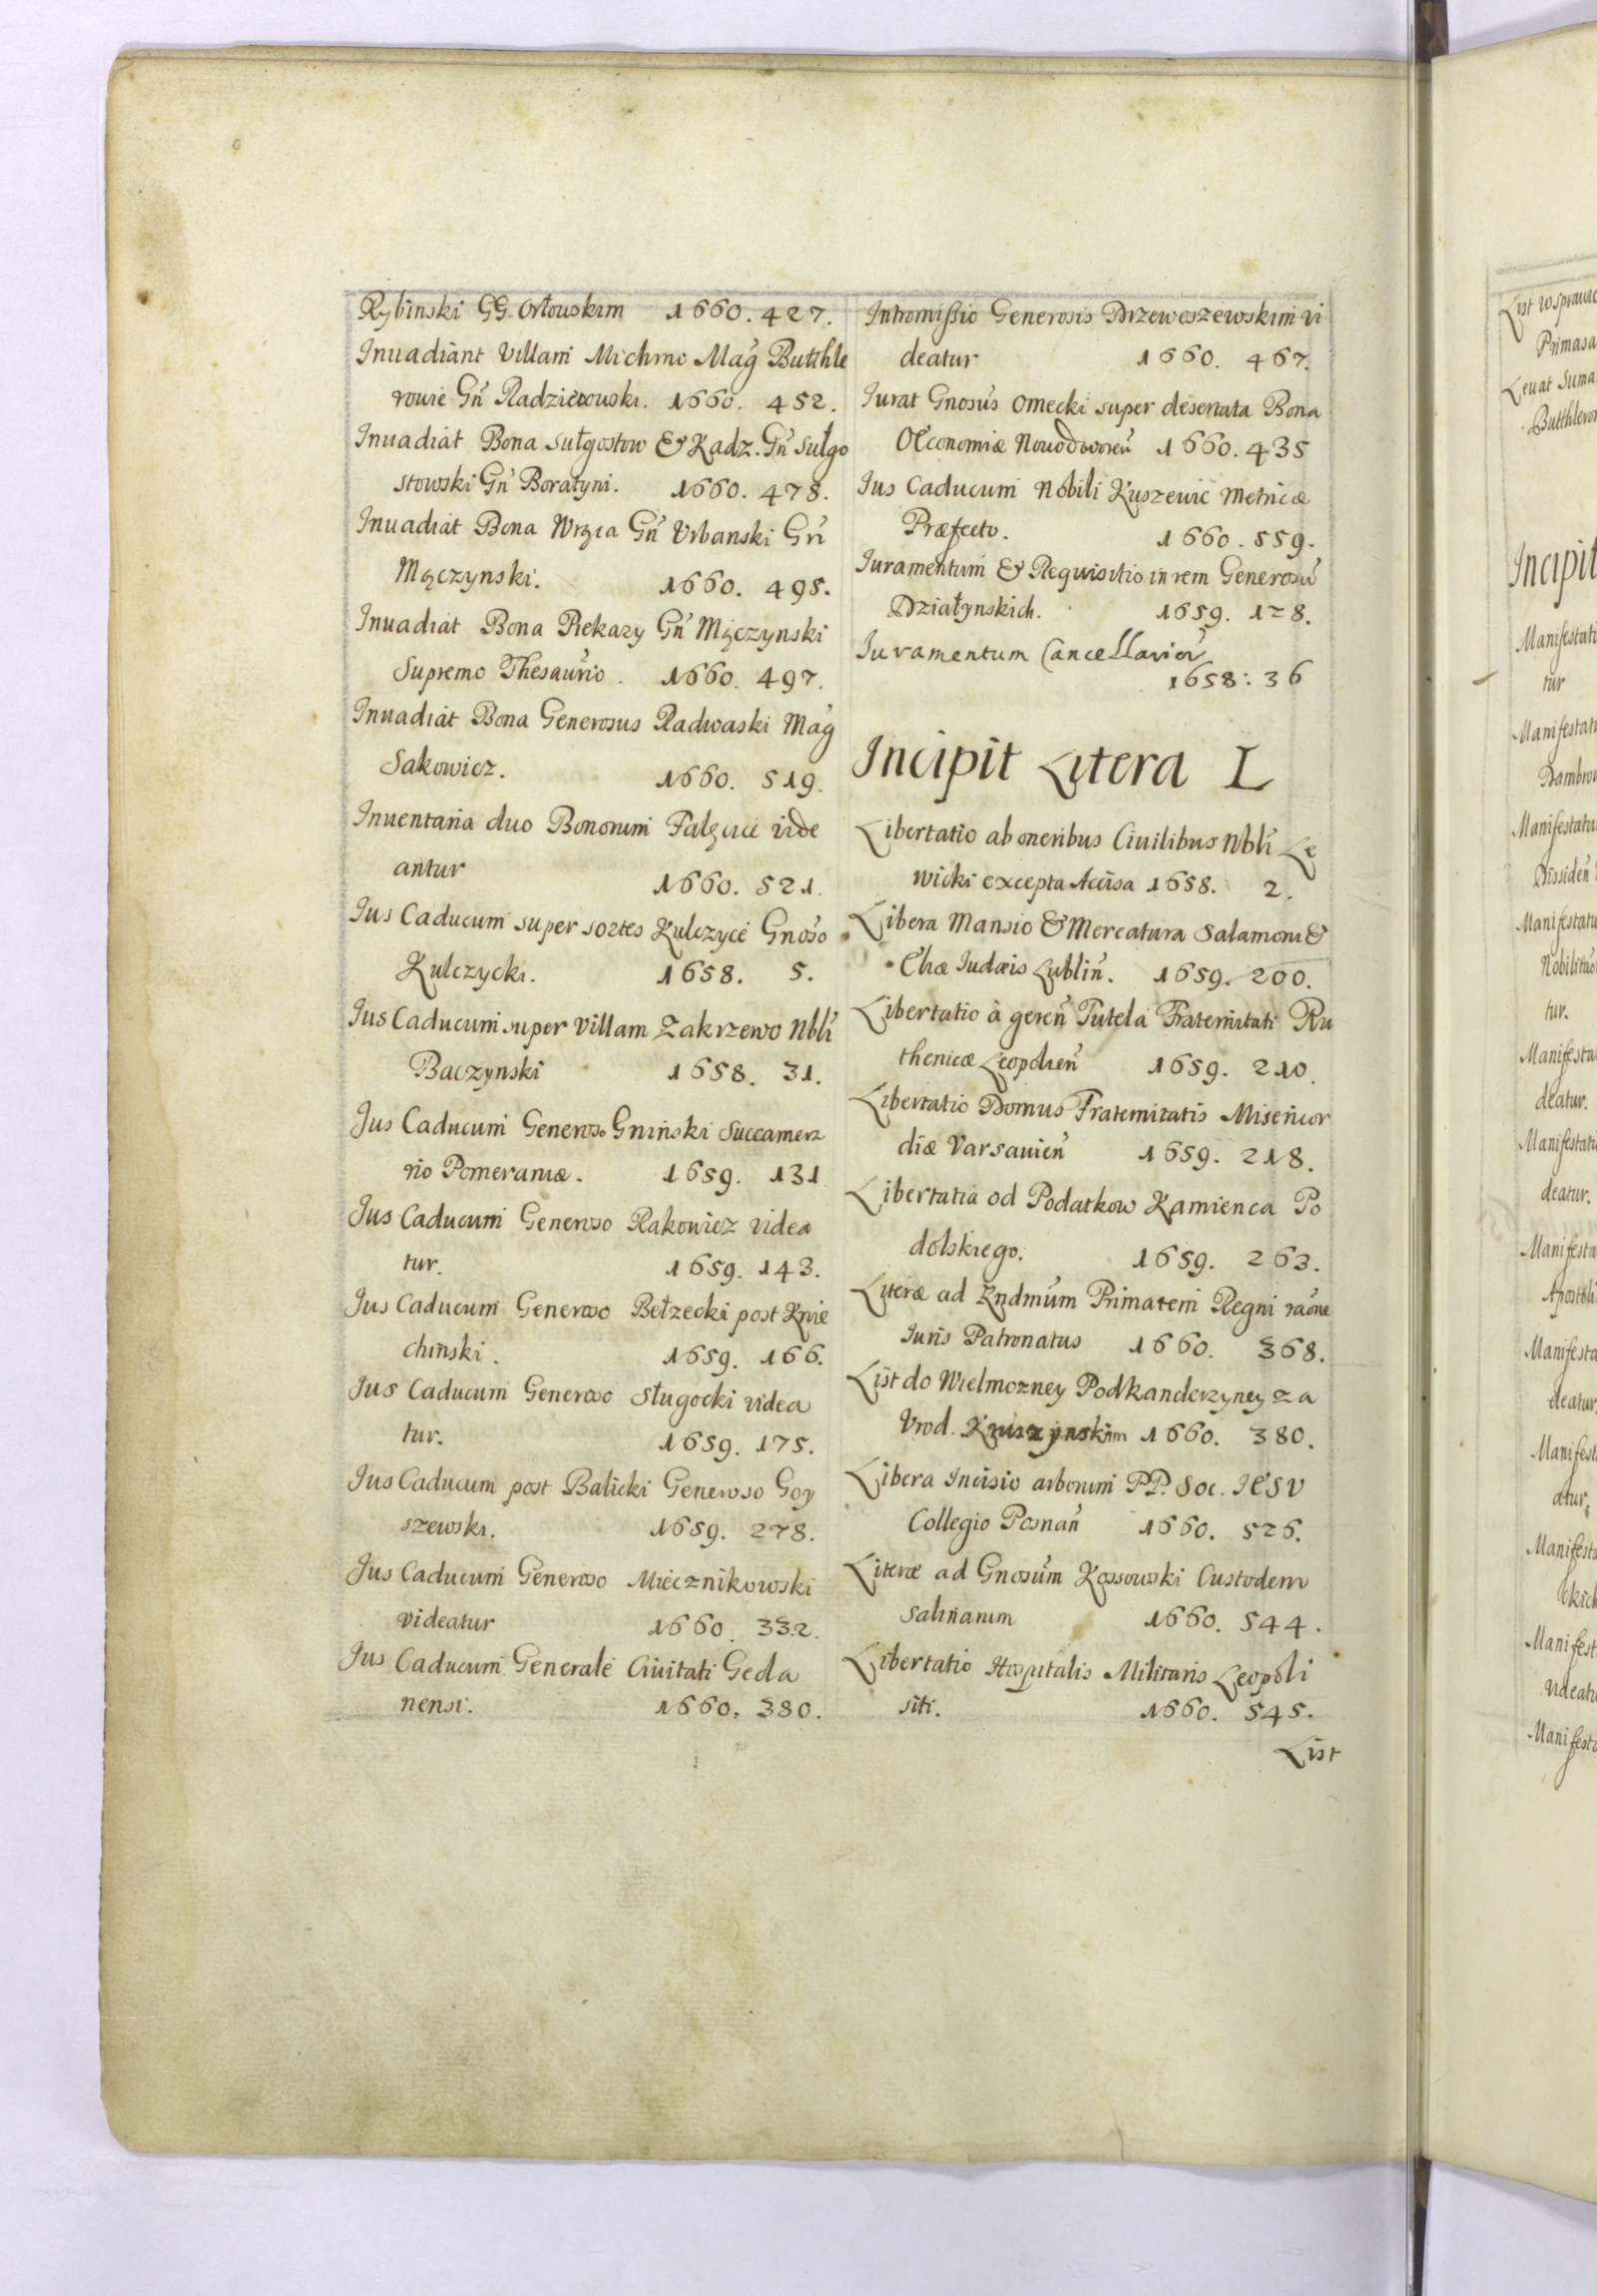 Rybinski GG. Orłowskim 1660. 427.
Inuadiant Villam Michrno Mag Butthle
rowie Gn Radzieiowski. 1660. 452.
Inuadiat Bona Sułgostow & Kadz. Gn Sułgo
stowski Gn Boratyni. 1660. 478.
Inuadiat Bona Wrzca Gn Vrbanski Gn
Męczynski. 1660. 495.
Inuadiat Bona Piekary Gn Męczynski
Supremo Thesaurio. 1660. 497.
Inuadiat Bona Generosus Radwaski Mag
Sakowicz. 1660. 519.
Inuentaria duo Bonorum Falęcice vide
antur 1660. 521.
Ius Caducum super sortes Kulczyce Gnoso
Kulczycki. 1658. 5.
Ius Caducum super Villam Zakrzewo Nbli
Baczynski 1658. 31.
Jus Caducum Generoso Gninski Succamera
rio Pomeraniæ. 1659. 131
Jus Caducum Generoso Rakowicz videa
tur. 1659. 143.
Jus Caducum Generoso Bełzecki post Knie
chinski. 1659. 166.
Jus Caducum Generoso Sługocki videa
tur. 1659. 175.
Jus Caducum post Balicki Generoso Goy
szewski. 1659. 278.
Jus Caducum Generoso Miecznikowski
videatur 1660. 332.
Jus Caducum Generale Ciuitati Geda
nensi. 1660. 380.
Intromissio Generosis Drzewoszewskim vi
deatur 1660. 467.
Iurat Gnosus Omecki super desertata Bona
Oeconomiæ Nouodworen 1660. 435
Jus Caducum Nobili Kuszewic Metricæ
Præfecto. 1660. 559.
Iuramentum & Requisitio in rem Generosu
Działynskich. 1659. 128.
Iuramentum Cancellarior
1658: 36
Incipit Litera L
Libertatio ab oneribus Ciuilibus Nbli Le
wicki excepta Accisa 1658. 2.
Libera Mansio & Mercatura Salamoni &
Eliæ Iudæis Lublin. 1659. 200.
Libertatio à geren Tutela Fraternitati Ru
thenicæ Leopolien 1659. 210.
Libertatio Domus Fraternitatis Misericor
diæ Varsauien 1659. 218.
Libertatia od Podatkow Kamienca Po
dolskiego. 1659. 263.
Literæ ad Rndmum Primatem Regni raone
Iuris Patronatus 1660. 368.
List do Wielmozney Podkanclerzyney za
Vrod. Kruszynskim 1660. 380.
Libera Incisio arborum PP. Soc. IESV
Collegio Posnan 1660. 526.
Literæ ad Gnosum Kossowski Custodem
Salinarum 1660. 544.
Libertatio Hospitalis Militaris Leopoli
siti. 1660. 545.
List
List w sprawie
Primasa
Leuat Suma
Butthleron
Incipit
Manifestati
tur
Manifestati
Dambrow
Manifestatu
Dissiden
Manifestatu
Nobilitu
tur.
Manifesta
deatur.
Manifestati
deatur.
Manifesta
Apostoli
Manifesta
deatur
Manifest
atur.
Manifesta
Manifest
videatu
Manifesta